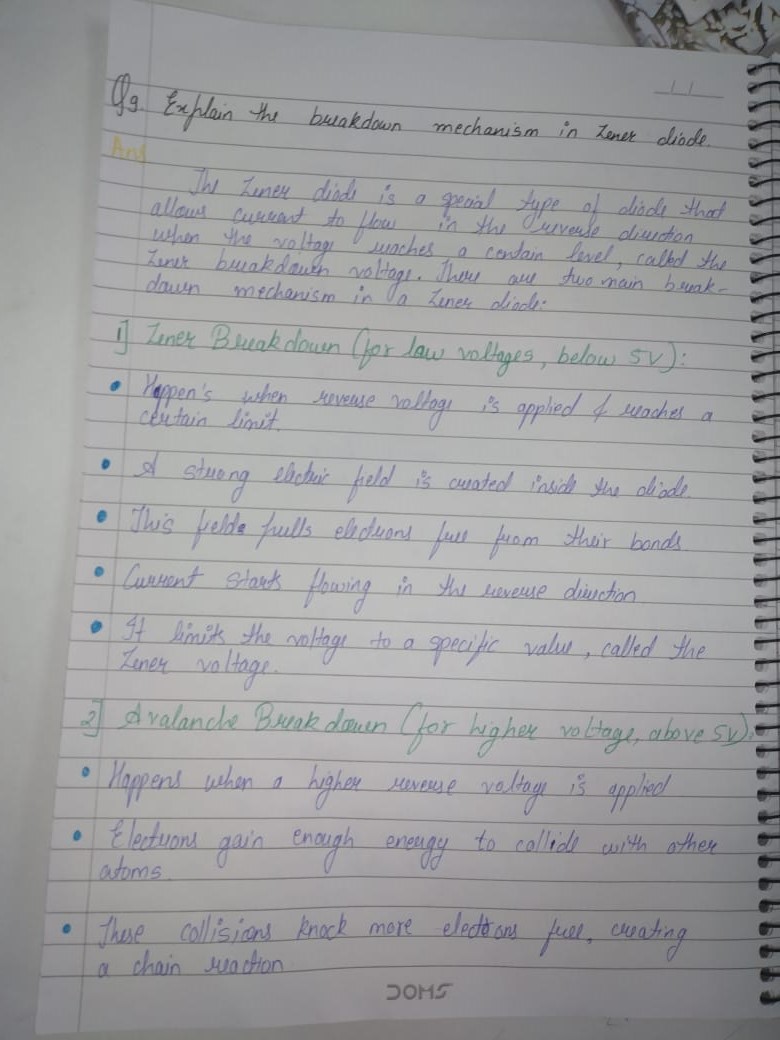 Q9. Explain the breakdown mechanism in Zener diode.
Ans
The Zener diode is a special type of diode that
allows current to flow in the reverse direction
when the voltage reaches a certain level, called the
Zener breakdown voltage. There are two main break-
down mechanism in a Zener diode:
1] Zener Breakdown (for low voltages, below 5V):
• Happen's when reverse voltage is applied & reaches a
certain limit.
• A strong electric field is created inside the diode
• This field pulls electrons free from their bonds
• Current starts flowing in the reverse direction
• It limits the voltage to a specific value, called the
Zener voltage.
2] Avalanche Breakdown (for higher voltage, above 5V):
• Happens when a higher reverse voltage is applied
• Electrons gain enough energy to collide with other
atoms.
• These collisions knock more electrons free, creating
a chain reaction
DOMS